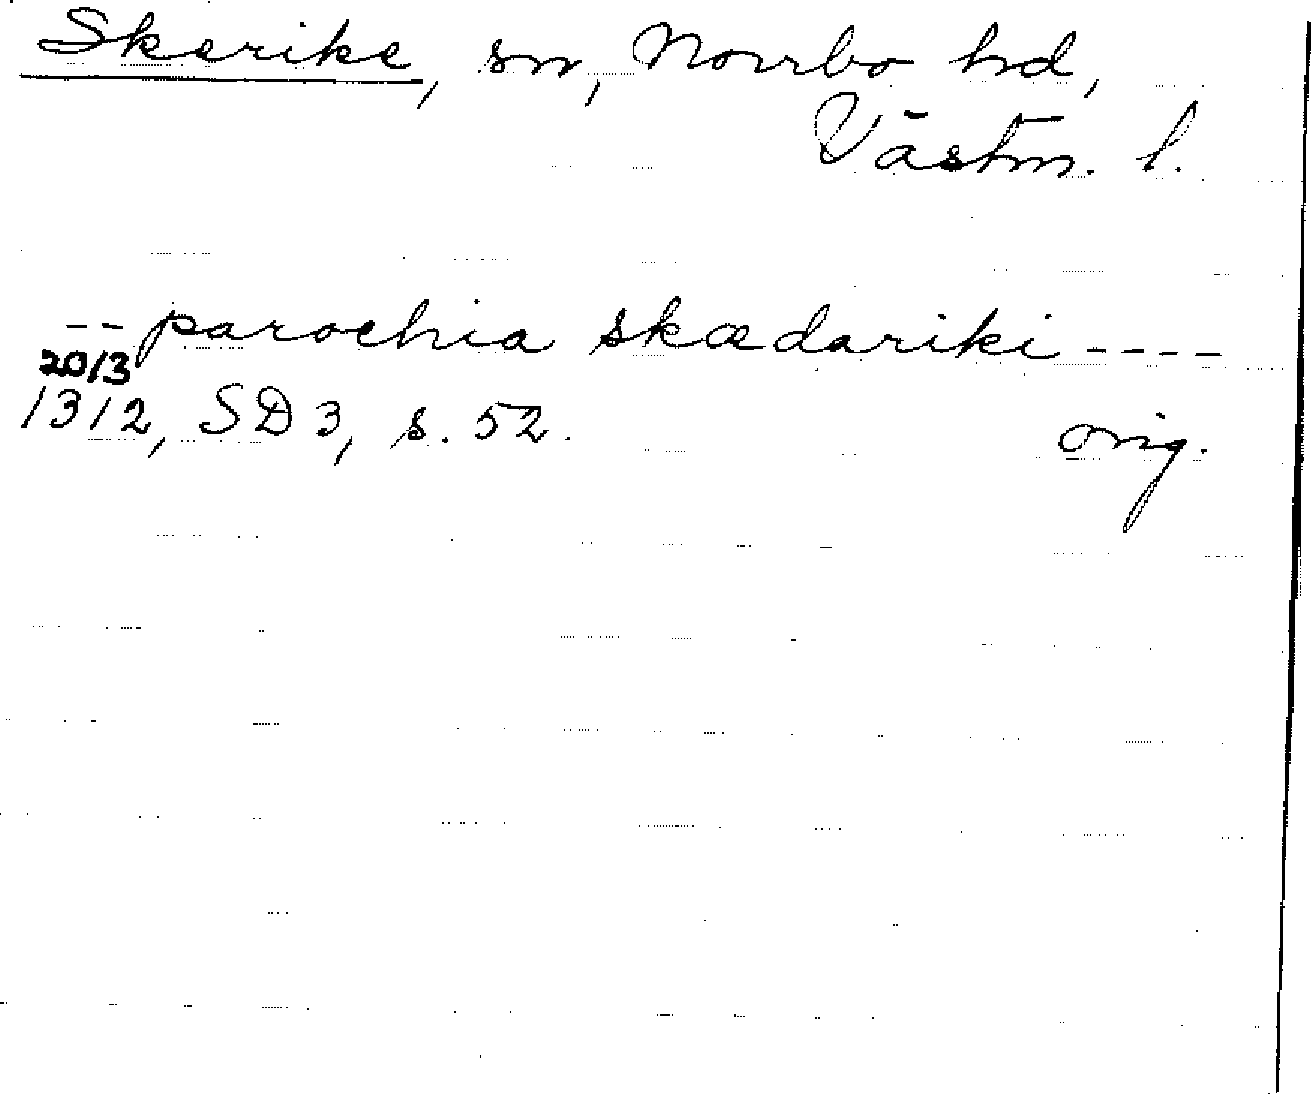 Skerike, sn, Norrbo hd,
Västm. l.
-- parochia skædariki ----
20/3
1312, SD 3, s. 52.
orig.